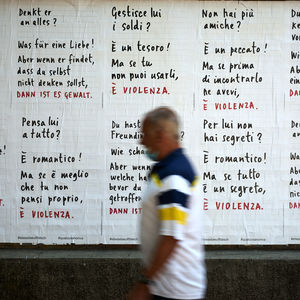 Denkt er
an alles?
Was für eine Liebe!
Aber wenn er findet,
dass du selbst
nicht denken sollst,
DANN IST ES GEWALT.
Gestisce lui
i soldi?
È un tesoro!
Ma se tu
non puoi usarli,
È VIOLENZA.
Non hai più
amiche?
È un peccato!
Ma se prima
di incontrarlo
ne avevi,
È VIOLENZA.
Pensa lui
a tutto?
È romantico!
Ma se è meglio
che tu non
pensi proprio,
È VIOLENZA.
Du hast
Freundin
Wie scha
Aber wenn
welche hat
bevor du
getroffen
DANN IST
Per lui non
hai segreti?
È romantico!
Ma se tutto
è un segreto,
È VIOLENZA.